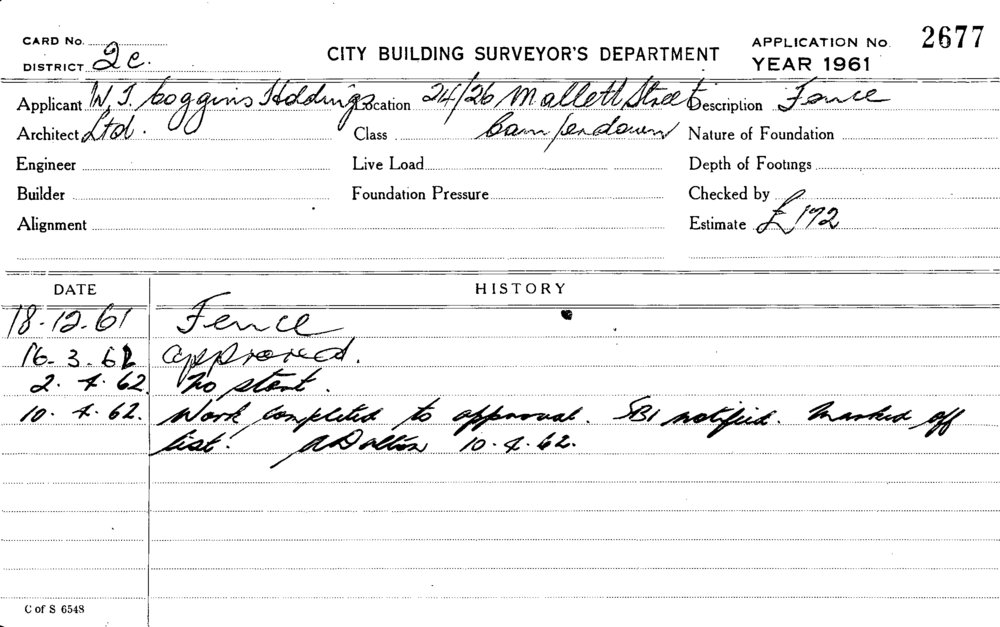 CARD No.
DISTRICT 2c.
CITY BUILDING SURVEYOR'S DEPARTMENT
APPLICATION No. 2677
YEAR 1961
Applicant W. J. Coggins Holdings Location 24/26 Mallett Street Description Fence
Architect Ltd. Class Camperdown Nature of Foundation
Engineer Live Load Depth of Footings
Builder Foundation Pressure Checked by
Alignment Estimate £172
DATE HISTORY
18.12.61 Fence
16.3.62 approved.
2.4.62 No start.
10.4.62. Work completed to approval. SBI notified. Marked off
list. ADalton 10.4.62.
C of S 6548